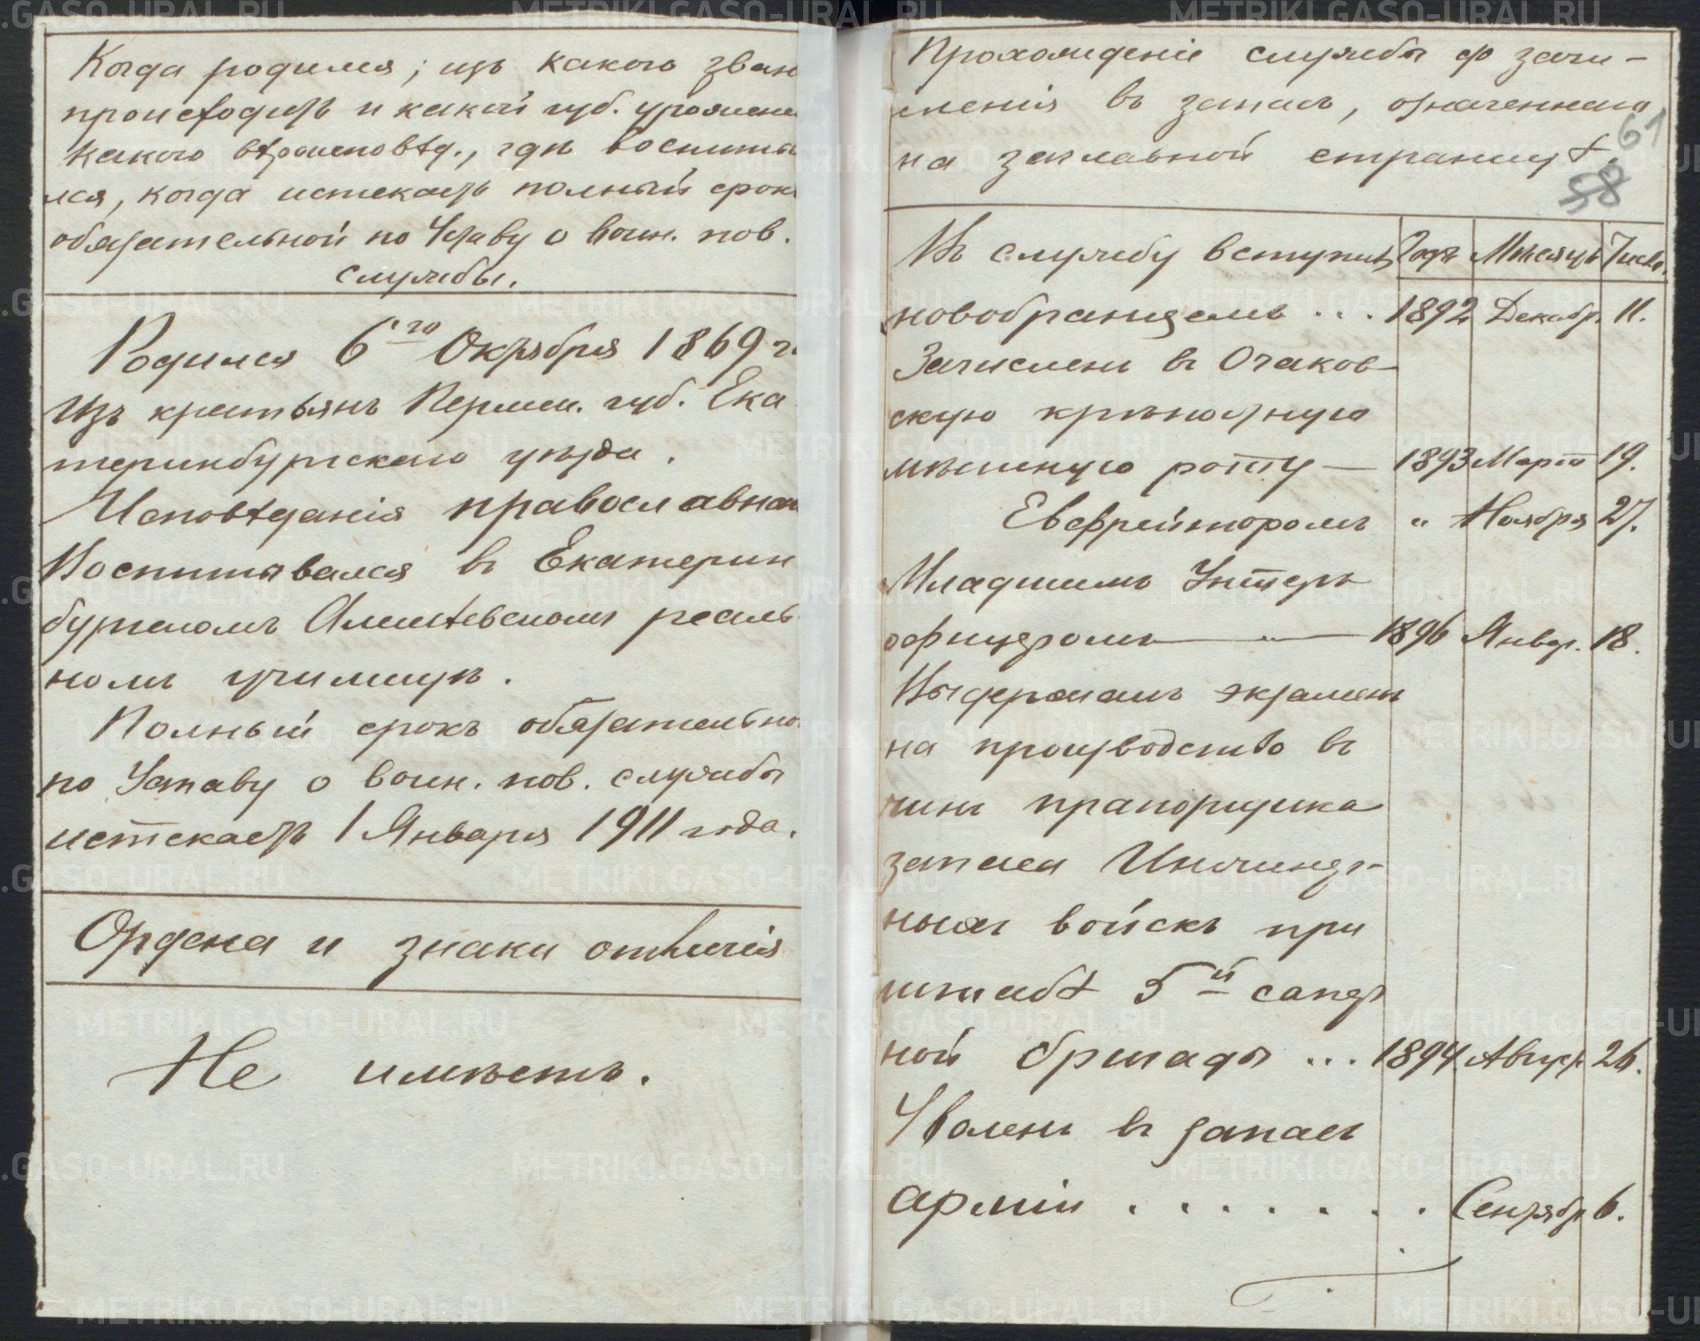 Когда родился; изъ какого зван
происходитъ и какой губ. урожене
какого вѣроисповѣд., гдѣ воспиты
лся, когда истекаетъ полный срок
обязательной по Уставу о воин. пов.
службы.
Родился 6го Октября 1869 г.
Изъ крестьянъ Пермск. губ. Ека
теринбургскаго уѣзда.
Исповѣданія православна
Воспитывался въ Екатерин
бургскомъ Алексѣевскомъ реаль
номъ училищѣ.
Полный срокъ обязательно
по Уставу о воин. пов. службы
истекаетъ 1 Января 1911 года.
Ордена и знаки отличія
Не имѣетъ.
Прохожденіе службы до зачи-
сленія въ запасъ, означеннаго
на заглавной страницѣ.
61
58
Въ службу вступилъ Годъ Мѣсяцъ Число.
новобранцемъ ... 1892 Декабр. 11.
Зачисленъ въ Очаков-
скую крѣпостную
минную роту — 1893 Марта 19.
Ефрейторомъ " Ноября 27.
Младшимъ Унтеръ
офицеромъ — " — 1896 Январ. 18.
Выдержалъ экзаменъ
на производство въ
чинъ прапорщика
запаса Инженер-
ныхъ войскъ при
штабѣ 5й сапер
ной бригады ... 1894 Август. 26.
Уволенъ въ запасъ
арміи . . . . . . . Сентябр 6.
METRIKI.GASO-URAL.RU